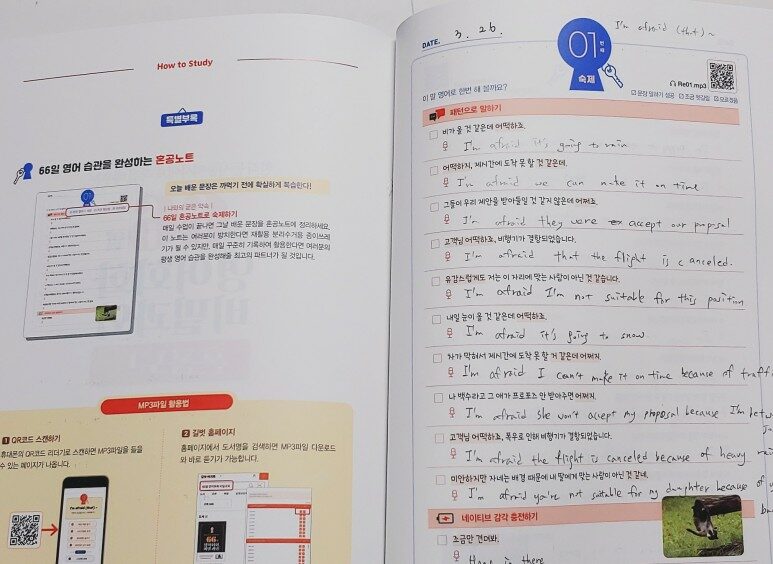 How to Study
특별부록
66일 영어 습관을 완성하는 혼공노트
오늘 배운 문장은 까먹기 전에 확실하게 복습한다!
| 나와의 굳은 약속 |
66일 혼공노트로 숙제하기
매일 수업이 끝나면 그날 배운 문장을 혼공노트에 정리하세요.
이 노트는 여러분이 방치한다면 재활용 분리수거용 종이쓰레
기가 될 수 있지만, 매일 꾸준히 기록하며 활용한다면 여러분의
평생 영어 습관을 완성해줄 최고의 파트너가 될 것입니다.
MP3파일 활용법
1 QR코드 스캔하기
휴대폰의 QR코드 리더기로 스캔하면 MP3파일을 들을
수 있는 페이지가 나옵니다.
2 길벗 홈페이지
홈페이지에서 도서명을 검색하면 MP3파일 다운로드
와 바로 듣기가 가능합니다.
DATE. 3. 26.
01 번째
숙제
I'm afraid (that) ~
이 말 영어로 한번 해 볼까요?
Re01 mp3
패턴으로 말하기
비가 올 것 같은데 어떡하죠.
I'm afraid it's going to rain
어떡하지, 제시간에 도착 못 할 것 같은데.
I'm afraid we can make it on time
그들이 우리 제안을 받아들일 것 같지 않은데 어쩌죠.
I'm afraid they were accept our proposal
고객님 어떡하죠, 비행기가 결항되었습니다.
I'm afraid that the flight is canceled.
유감스럽게도 저는 이 자리에 맞는 사람이 아닌 것 같습니다.
I'm afraid I'm not suitable for this position
내일 눈이 올 것 같은데 어떡하죠.
I'm afraid it's going to snow.
차가 막혀서 제시간에 도착 못 할 거 같은데 어쩌지.
I'm afraid I can't make it on time because of traff
나 백수라고 그 애가 프로포즈 안 받아주면 어쩌지.
I'm afraid she won't accept my proposal because I'm
고객님 어떡하죠, 폭우로 인해 비행기가 결항되었습니다.
I'm afraid the flight is canceled because of heavy rain
미안하지만 자네는 배경 때문에 내 딸에게 맞는 사람이 아닌 것 같네.
I'm afraid you're not suitable for my daughter because of
네이티브 감각 충전하기
조금만 견뎌봐.
in there